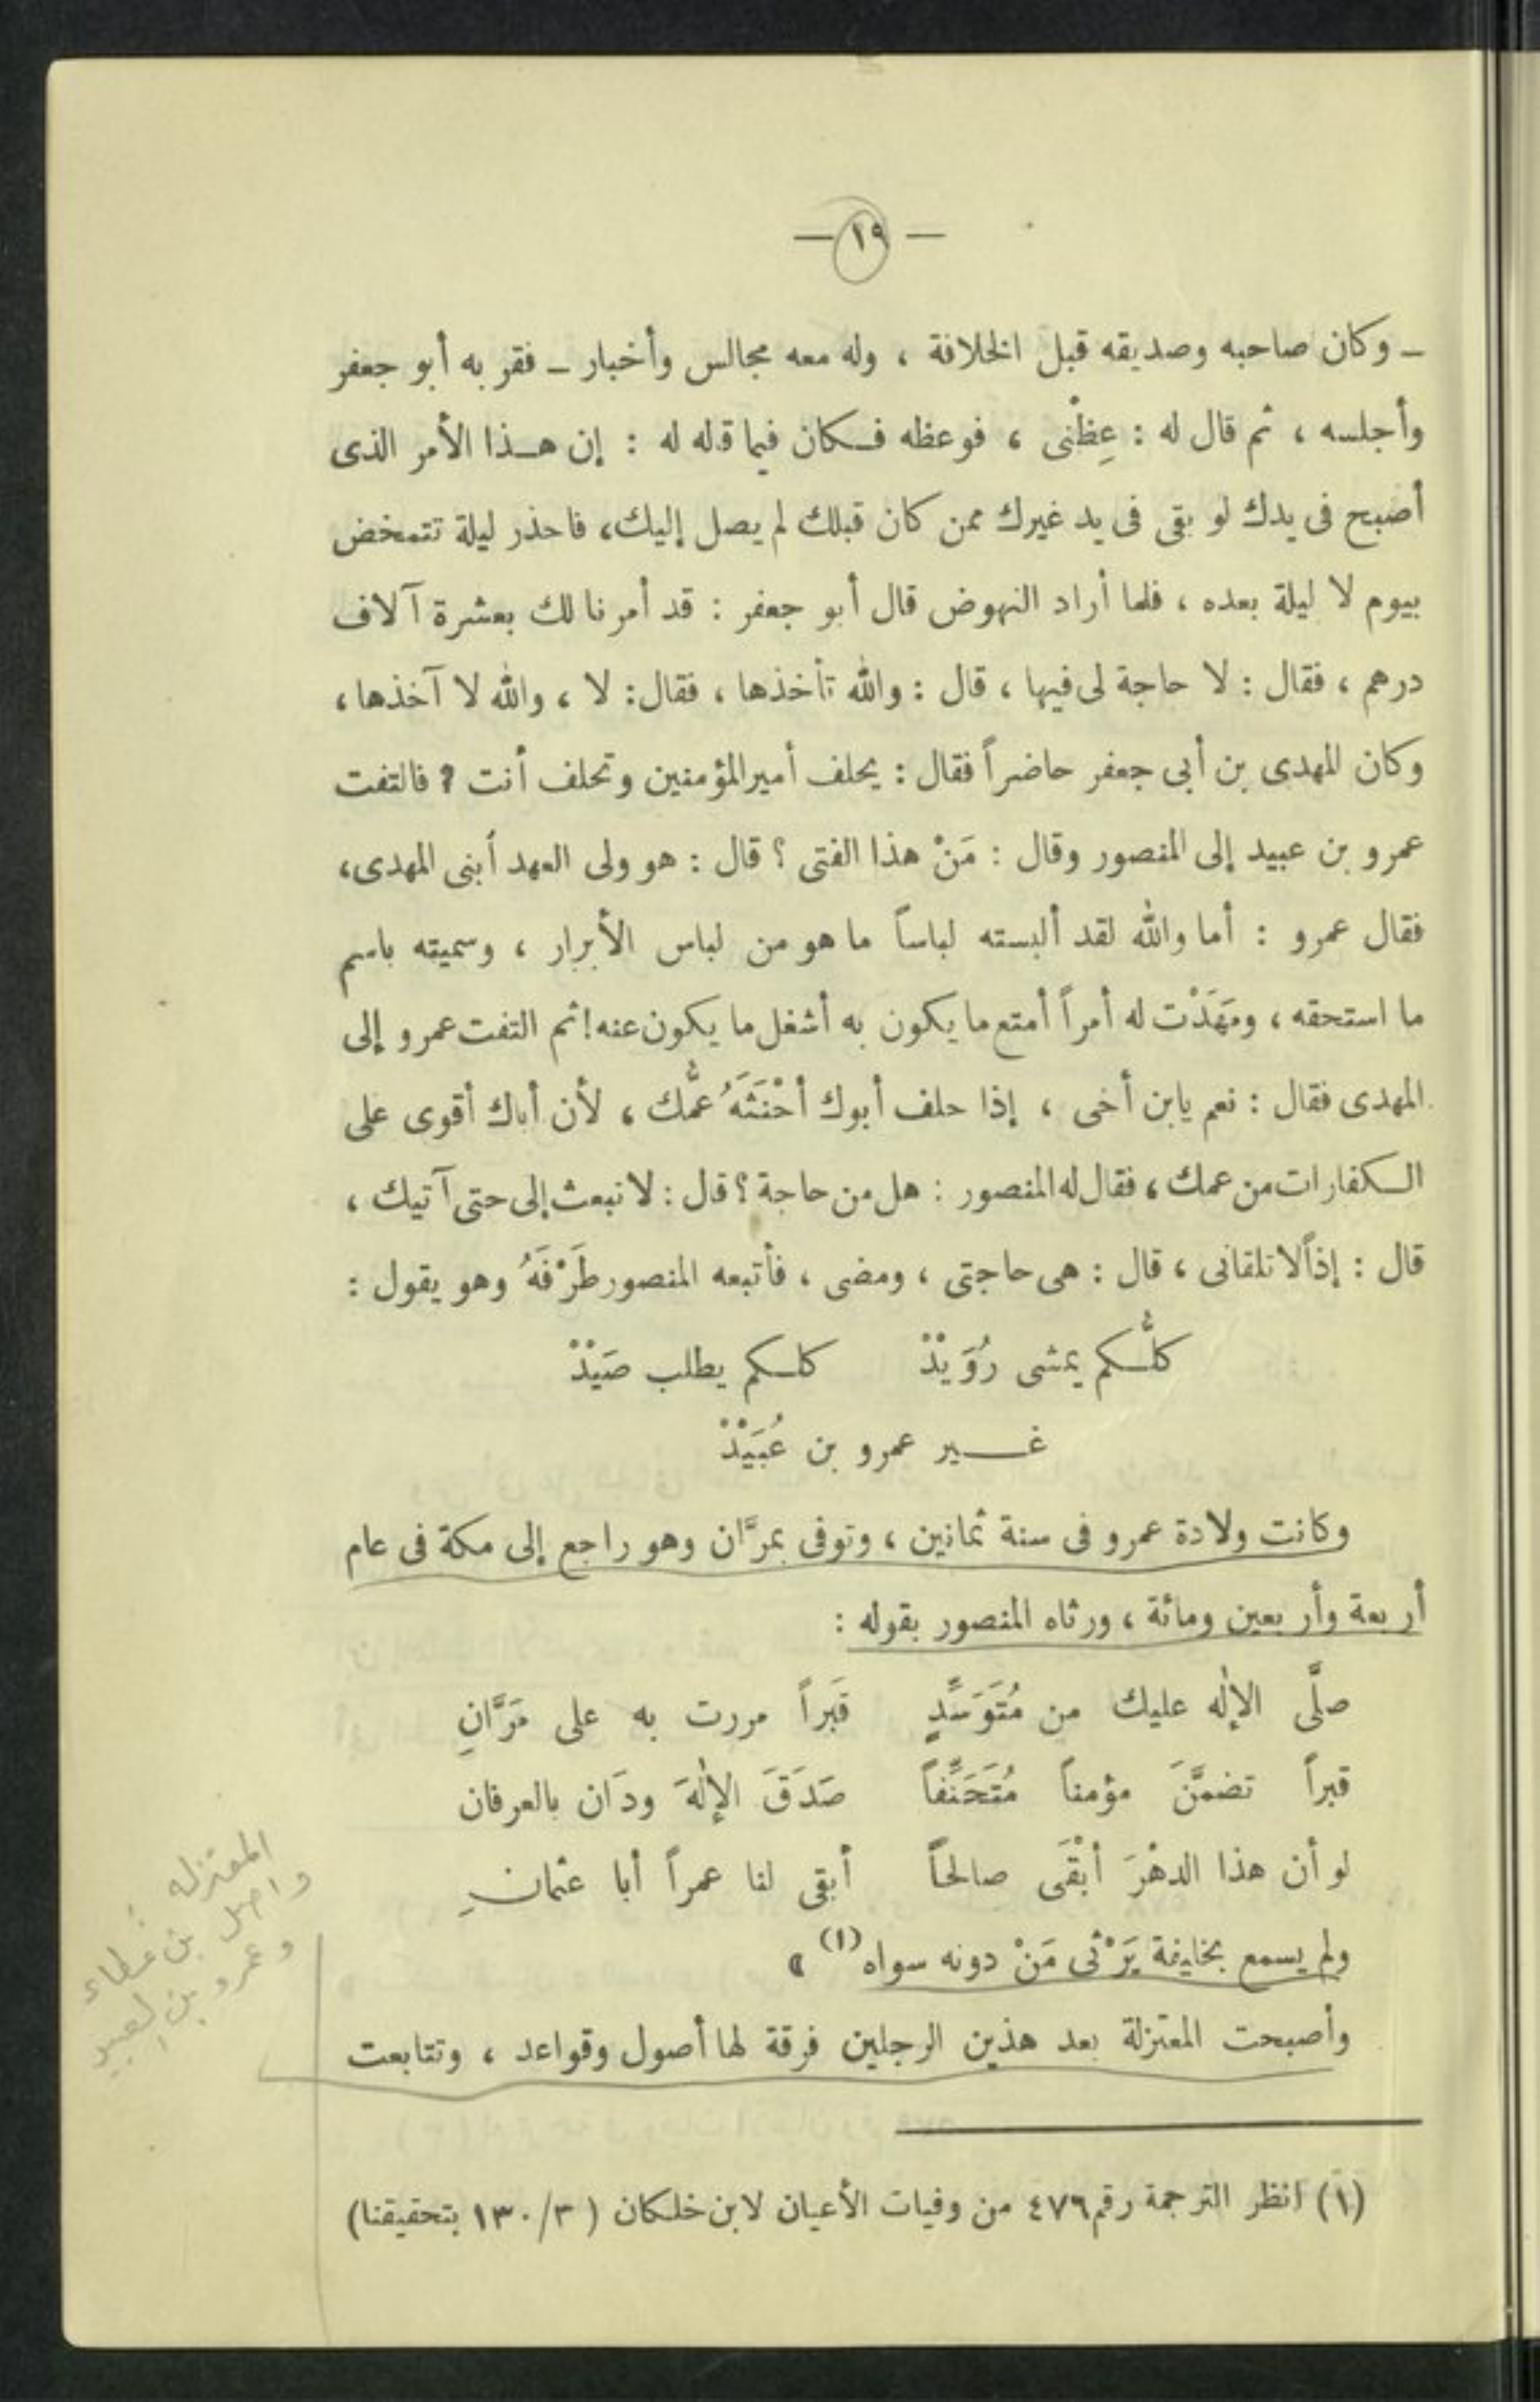 — ١٩ —
— وكان صاحبه وصديقه قبل الخلافة ، وله معه مجالس وأخبار — فقربه أبو جعفر
وأجلسه ، ثم قال له : عِظْنى ، فوعظه فكان فيما قاله له : إن هذا الأمر الذى
أصبح فى يدك لو بقى فى يد غيرك ممن كان قبلك لم يصل إليك، فاحذر ليلة تتمخض
بيوم لا ليلة بعده ، فلما أراد النهوض قال أبو جعفر : قد أمرنا لك بعشرة آلاف
درهم ، فقال : لا حاجة لى فيها ، قال : والله تأخذها ، فقال : لا ، والله لا آخذها ،
وكان المهدى بن أبى جعفر حاضراً فقال : يحلف أمير المؤمنين وتحلف أنت ؟ فالتفت
عمرو بن عبيد إلى المنصور وقال : مَنْ هذا الفتى ؟ قال : هو ولى العهد أبنى المهدى،
فقال عمرو : أما والله لقد ألبسته لباساً ما هو من لباس الأبرار ، وسميته باسم
ما استحقه ، ومَهَدْت له أمراً أمتع ما يكون به أشغل ما يكون عنه! ثم التفت عمرو إلى
المهدى فقال : نعم يابن أخى ، إذا حلف أبوك أحْنَثَهُ عمُّك ، لأن أباك أقوى على
الكفارات من عمك ، فقال له المنصور : هل من حاجة ؟ قال : لا تبعث إلى حتى آتيك ،
قال : إذاً لا تلقانى ، قال : هى حاجتى ، ومضى ، فأتبعه المنصور طَرْفَهُ وهو يقول :
كلُّكم يمشى رُوَيْدْ كلكم يطلب صَيْدْ
غير عمرو بن عُبَيْدْ
وكانت ولادة عمرو فى سنة ثمانين ، وتوفى بمرَّان وهو راجع إلى مكة فى عام
أربعة وأربعين ومائة ، ورثاه المنصور بقوله :
صلَّى الإله عليك من مُتَوَسِّدٍ قَبراً مررت به على مَرَّانِ
قبراً تضمَّنَ مؤمناً مُتَحَنِّفاً صَدَقَ الإلهَ ودَان بالعرفان
لو أن هذا الدهْرَ أبْقَى صالحاً أبقى لنا عمراً أبا عثمانِ
ولم يسمع بخليفة يَرْثى مَنْ دونه سواه (١) »
وأصبحت المعتزلة بعد هذين الرجلين فرقة لها أصول وقواعد ، وتتابعت
المعتزله :
واصل بن عطاء
وعمرو بن العبيد
(١) انظر الترجمة رقم ٤٧٦ من وفيات الأعيان لابن خلكان ( ٣/١٣٠ بتحقيقنا)